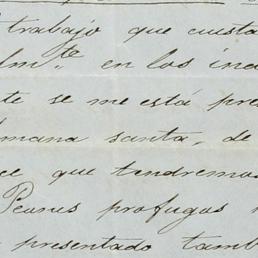 trabajo que cuesta
lmte en los ind
te se me está pre
mana santa, de
ce que tendremos
Pearus profugas
presentado tamb